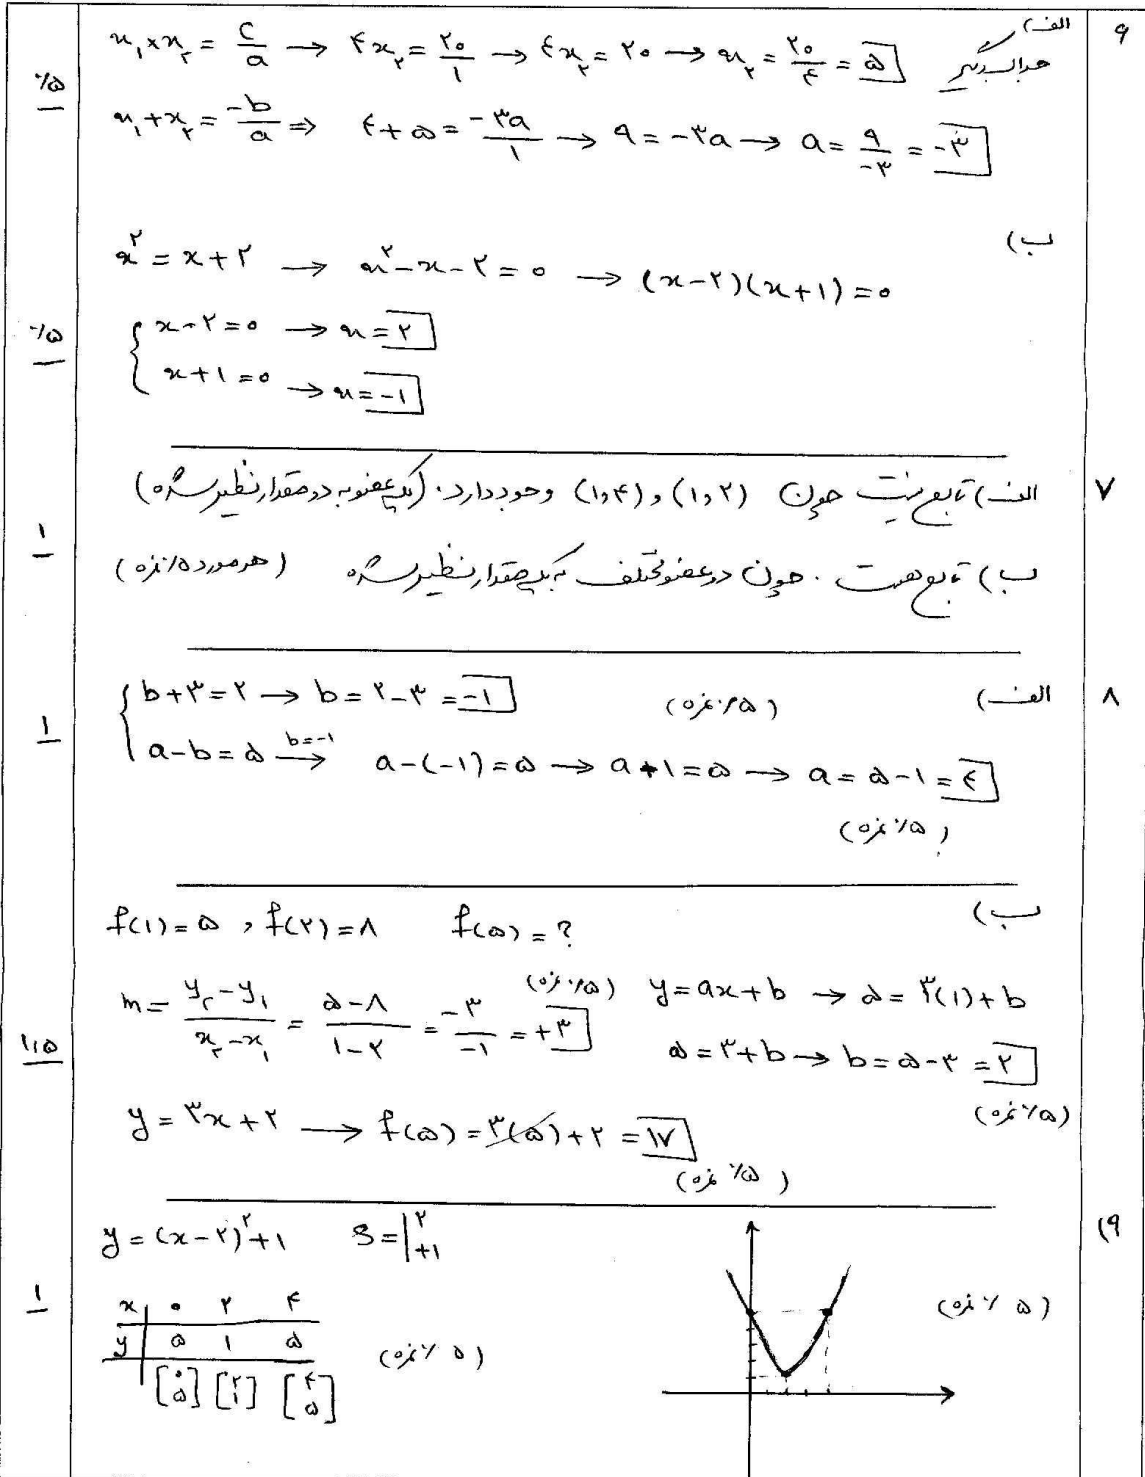 ۶
الف)
x₁ × x₂ = c/a → ۴x₂ = ۲۰/۱ → ۴x₂ = ۲۰ → x₂ = ۲۰/۴ = ۵
x₁ + x₂ = -b/a ⇒ ۴ + ۵ = -۳a/۱ → ۹ = -۳a → a = ۹/-۳ = -۳
٪۵
ب)
x² = x + ۲ → x² - x - ۲ = ۰ → (x - ۲)(x + ۱) = ۰
x - ۲ = ۰ → x = ۲
x + ۱ = ۰ → x = -۱
٪۵
۷
الف) تابع نیست چون (۱,۲) و (۱,۴) وجود دارد. (یک عضو به دو مقدار نظیر شده)
ب) تابع هست. چون دو عضو مختلف به یک مقدار نظیر شده (هر مورد ٪۵ نمره)
۱
۸
الف)
b + ۳ = ۲ → b = ۲ - ۳ = -۱ (٪۵ نمره)
a - b = ۵ →(b=-۱) a - (-۱) = ۵ → a + ۱ = ۵ → a = ۵ - ۱ = ۴
(٪۵ نمره)
۱
ب)
f(۱) = ۵ , f(۲) = ۸ f(۵) = ?
m = (y₂ - y₁)/(x₂ - x₁) = (۵ - ۸)/(۱ - ۲) = -۳/-۱ = +۳ (٪۵ نمره) y = ax + b → ۵ = ۳(۱) + b
۵ = ۳ + b → b = ۵ - ۳ = ۲
(٪۵ نمره)
y = ۳x + ۲ → f(۵) = ۳(۵) + ۲ = ۱۷
(٪۵ نمره)
۱,۵
۹)
y = (x - ۲)² + ۱ S = |۲ +۱
x | ۰ ۲ ۴
y | ۵ ۱ ۵
[۰ ۵] [۲ ۱] [۴ ۵]
(٪۵ نمره)
(٪۵ نمره)
۱